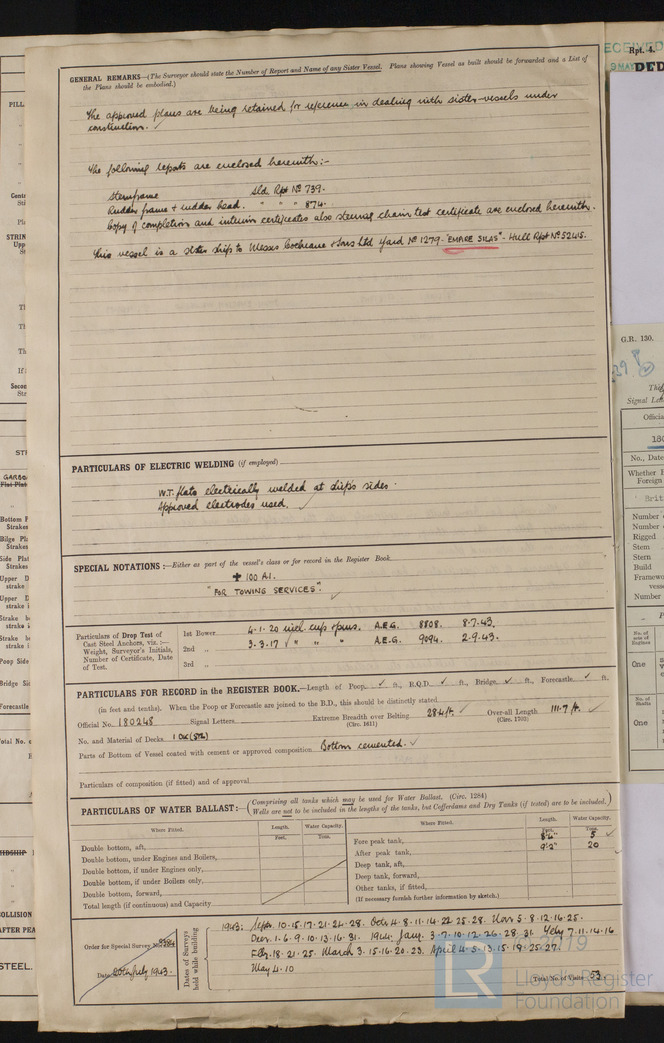 GENERAL REMARKS—(The Surveyor should state the Number of Report and Name of any Sister Vessel. Plans showing Vessel as built should be forwarded and a List of
the Plans should be embodied.)
The approved plans are being retained for reference in dealing with sister-vessels under
construction. ✓
The following reports are enclosed herewith:-
Sternframe Sld. Rpt No 739.
Rudder frame & rudder head. " " " 874.
Copy of completion and interim certificates also steering chain test certificate are enclosed herewith.
This vessel is a sister ship to Messrs Cochrane & Sons Ltd Yard No 1279 - "EMPIRE SILAS" - Hull Rpt No 52415.
PARTICULARS OF ELECTRIC WELDING (if employed)
W.T. flats electrically welded at ship's sides.
Approved electrodes used. ✓
SPECIAL NOTATIONS:—Either as part of the vessel's class or for record in the Register Book
✠ 100 A1.
"FOR TOWING SERVICES". ✓
Particulars of Drop Test of
Cast Steel Anchors, viz.:—
Weight, Surveyor's Initials,
Number of Certificate, Date
of Test.
1st Bower 4.1.20 incl. cups & pins. A.E.G. 8808. 8.7.43.
2nd " 3.3.17 ✓ " " " A.E.G. 9094. 2.9.43.
3rd "
PARTICULARS FOR RECORD in the REGISTER BOOK.—Length of Poop ✓ ft., R.Q.D. ✓ ft., Bridge ✓ ft., Forecastle ✓ ft.
(in feet and tenths). When the Poop or Forecastle are joined to the B.D., this should be distinctly stated
Official No. 180248 Signal Letters Extreme Breadth over Belting (Circ. 1611) 28.4 ft. ✓ Over-all Length (Circ. 1703) 111.7 ft. ✓
No. and Material of Decks 1 DK (STL)
Parts of Bottom of Vessel coated with cement or approved composition Bottom cemented. ✓
Particulars of composition (if fitted) and of approval
PARTICULARS OF WATER BALLAST:—(Comprising all tanks which may be used for Water Ballast. (Circ. 1284)
Wells are not to be included in the lengths of the tanks, but Cofferdams and Dry Tanks (if tested) are to be included.)
Where Fitted. Length. Water Capacity. Where Fitted. Length. Water Capacity.
Feet. Tons. Feet. Tons.
Double bottom, aft, Fore peak tank, 5 ✓
Double bottom, under Engines and Boilers, After peak tank, 9'.2" 20
Double bottom, if under Engines only, Deep tank, aft,
Double bottom, if under Boilers only, Deep tank, forward,
Double bottom, forward, Other tanks, if fitted,
Total length (if continuous) and Capacity (If necessary furnish further information by sketch.)
Order for Special Survey No.
Date 20th July 1943.
Dates of Surveys
held while building
1943: Sepr. 10.15.17.21.24.28. Octr. 4.8.11.14.22.25.28. Novr. 5.8.12.16.25.
Decr. 1.6.9.10.13.16.31. 1944. Jany. 3.7.10.12.26.28.31. Feby 7.11.14.16
Feby. 18.21.25. March 3.15.16.20.23. April 4.5.13.15.19.25.27.
May 4.10
Total No. of Visits 53.
2019
LR
Lloyd's Register
Foundation
RECEIVED
Rpt. 4.
9 MAY
G.R. 130.
Signal Let
Official
No., Date
Whether
Foreign
Brit
Number
Number
Rigged
Stem
Stern
Build
Number
No. of
sets of
Engines
One
No. of
Shafts
One